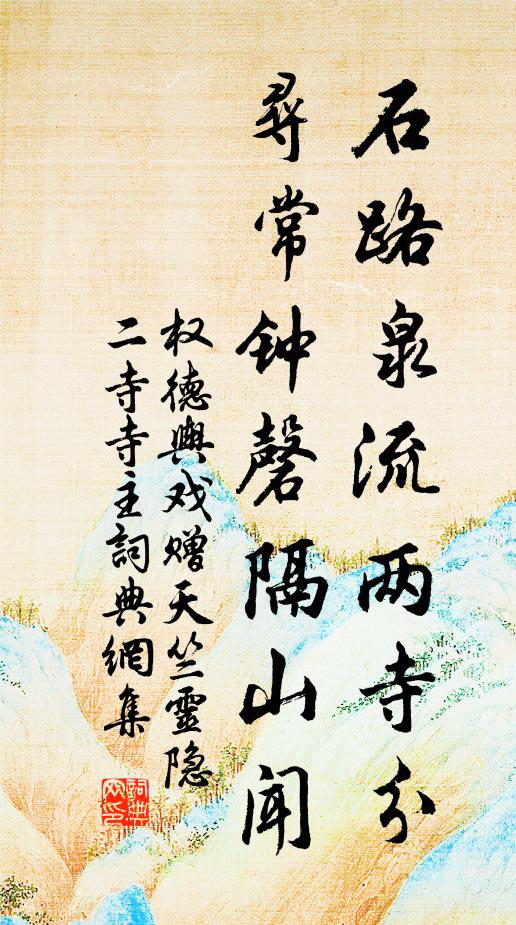 石路泉流两寺分
尋常钟磬隔山闻
权德輿戏赠天竺靈隐
二寺寺主詞典網集
詞典網印